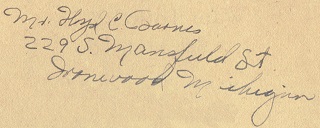 Mr. Floyd C Cournes
229 S. Mansfield St.
Ironwood Michigan